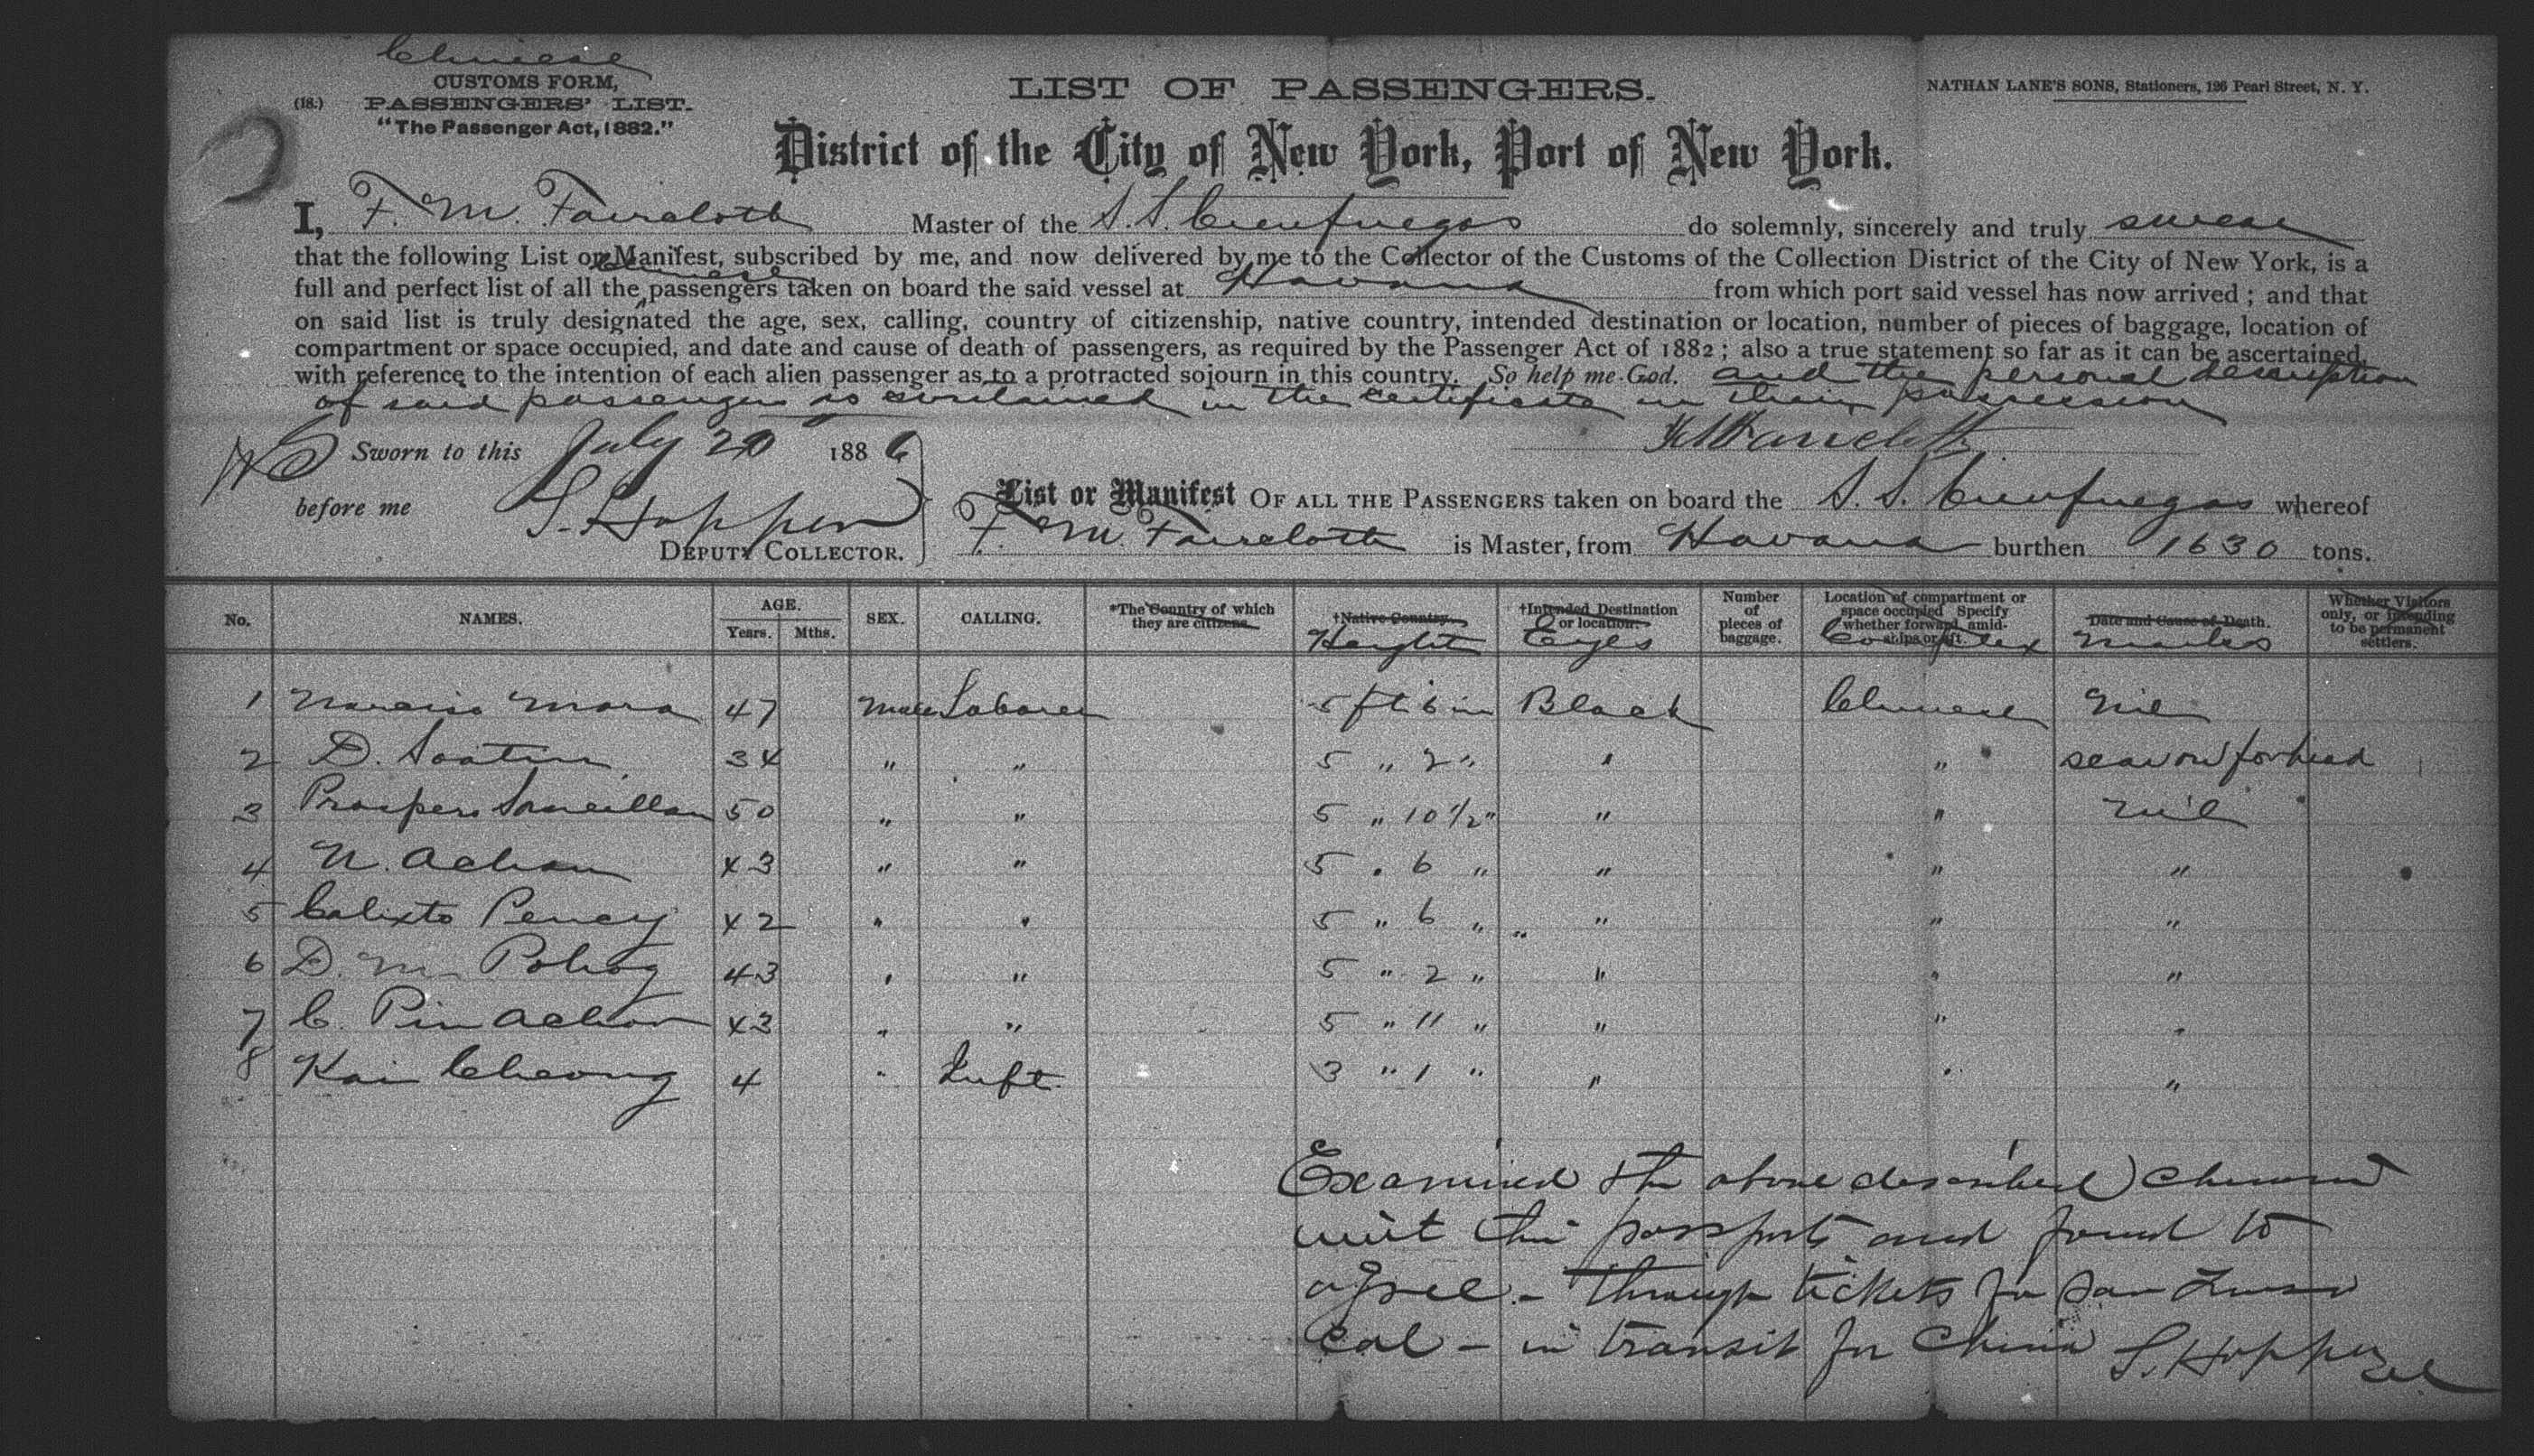 Chinese
CUSTOMS FORM,
(18.) PASSENGERS' LIST.
"The Passenger Act, 1882."
LIST OF PASSENGERS.
NATHAN LANE'S SONS, Stationers, 126 Pearl Street, N. Y.
District of the City of New York, Port of New York.
I, F. M. Faircloth Master of the S. S. Cienfuegos do solemnly, sincerely and truly swear
that the following List or Manifest, subscribed by me, and now delivered by me to the Collector of the Customs of the Collection District of the City of New York, is a
full and perfect list of all the Chinese passengers taken on board the said vessel at Havana from which port said vessel has now arrived; and that
on said list is truly designated the age, sex, calling, country of citizenship, native country, intended destination or location, number of pieces of baggage, location of
compartment or space occupied, and date and cause of death of passengers, as required by the Passenger Act of 1882; also a true statement so far as it can be ascertained
with reference to the intention of each alien passenger as to a protracted sojourn in this country. So help me God. and the personal description
of said passengers as contained in the certificate in their possession
Sworn to this July 20 1886
F M Faircloth
before me S. Hopper
DEPUTY COLLECTOR.
List or Manifest OF ALL THE PASSENGERS taken on board the S. S. Cienfuegos whereof
F. M. Faircloth is Master, from Havana burthen 1630 tons.
No. NAMES. AGE. Years. Mths. SEX. CALLING. *The Country of which they are citizens. †Native Country. Height †Intended Destination or location. Eyes Number of pieces of baggage. Location of compartment or space occupied Specify whether forward, amidships or aft. Complex Date and Cause of Death. Marks Whether Visitors only, or intending to be permanent settlers.
1 Narciso Mora 47 Male Laborer 5 ft 6 in Black Chinese Nil
2 D. 34 " " 5 " 2 " " " scar on forhead
3 Prospero 50 " " 5 " 10 1/2 " " " nil
4 N. Achan 43 " " 5 " 6 " " " "
5 Calixto 42 " " 5 " 6 " " " "
6 D. M. 43 " " 5 " 2 " " " "
7 C. Pin Achon 43 " " 5 " 11 " " " "
8 Kai Cheong 4 " Inft. 3 " 1 " " " "
Examined the above described Chinese
with their passports and found to
agree. - Through tickets for San
Cal - in transit for China S. Hopper